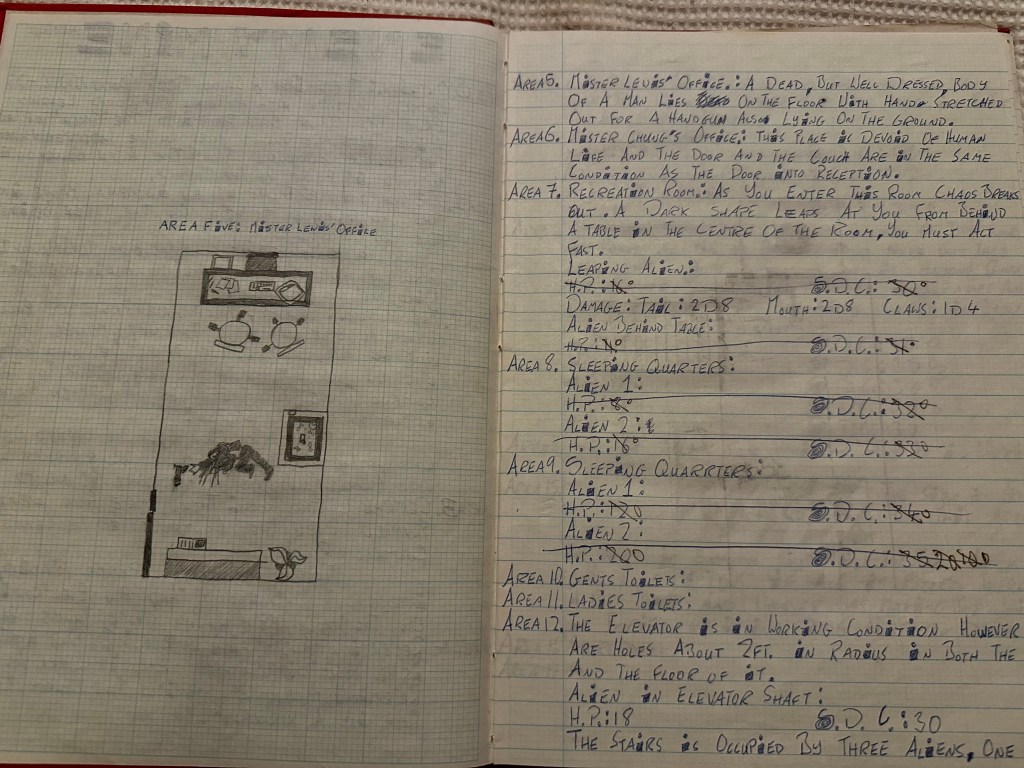 AREA FIVE: MISTER LEWIS' OFFICE
AREA 5. MISTER LEWIS' OFFICE.: A DEAD, BUT WELL DRESSED, BODY
OF A MAN LIES ON THE FLOOR WITH HAND STRETCHED
OUT FOR A HANDGUN ALSO LYING ON THE GROUND.
AREA 6. MISTER CHUNG'S OFFICE.: THIS PLACE IS DEVOID OF HUMAN
LIFE AND THE DOOR AND THE COUCH ARE IN THE SAME
CONDITION AS THE DOOR INTO RECEPTION.
AREA 7. RECREATION ROOM.: AS YOU ENTER THIS ROOM CHAOS BREAKS
OUT. A DARK SHAPE LEAPS AT YOU FROM BEHIND
A TABLE IN THE CENTRE OF THE ROOM, YOU MUST ACT
FAST.
LEAPING ALIEN.:
H.P.: S.D.C.:
DAMAGE: TAIL: 2D8 MOUTH: 2D8 CLAWS: 1D4
ALIEN BEHIND TABLE:
H.P.: S.D.C.:
AREA 8. SLEEPING QUARTERS:
ALIEN 1:
H.P.: S.D.C.:
ALIEN 2:
H.P.: S.D.C.:
AREA 9. SLEEPING QUARRTERS:
ALIEN 1:
H.P.: S.D.C.:
ALIEN 2:
H.P.: S.D.C.:
AREA 10. GENTS TOILETS:
AREA 11. LADIES TOILETS:
AREA 12. THE ELEVATOR IS IN WORKING CONDITION HOWEVER
ARE HOLES ABOUT 2FT. IN RADIUS IN BOTH THE
AND THE FLOOR OF IT.
ALIEN IN ELEVATOR SHAFT:
H.P.: 18 S.D.C.: 30
THE STAIRS IS OCCUPIED BY THREE ALIENS, ONE